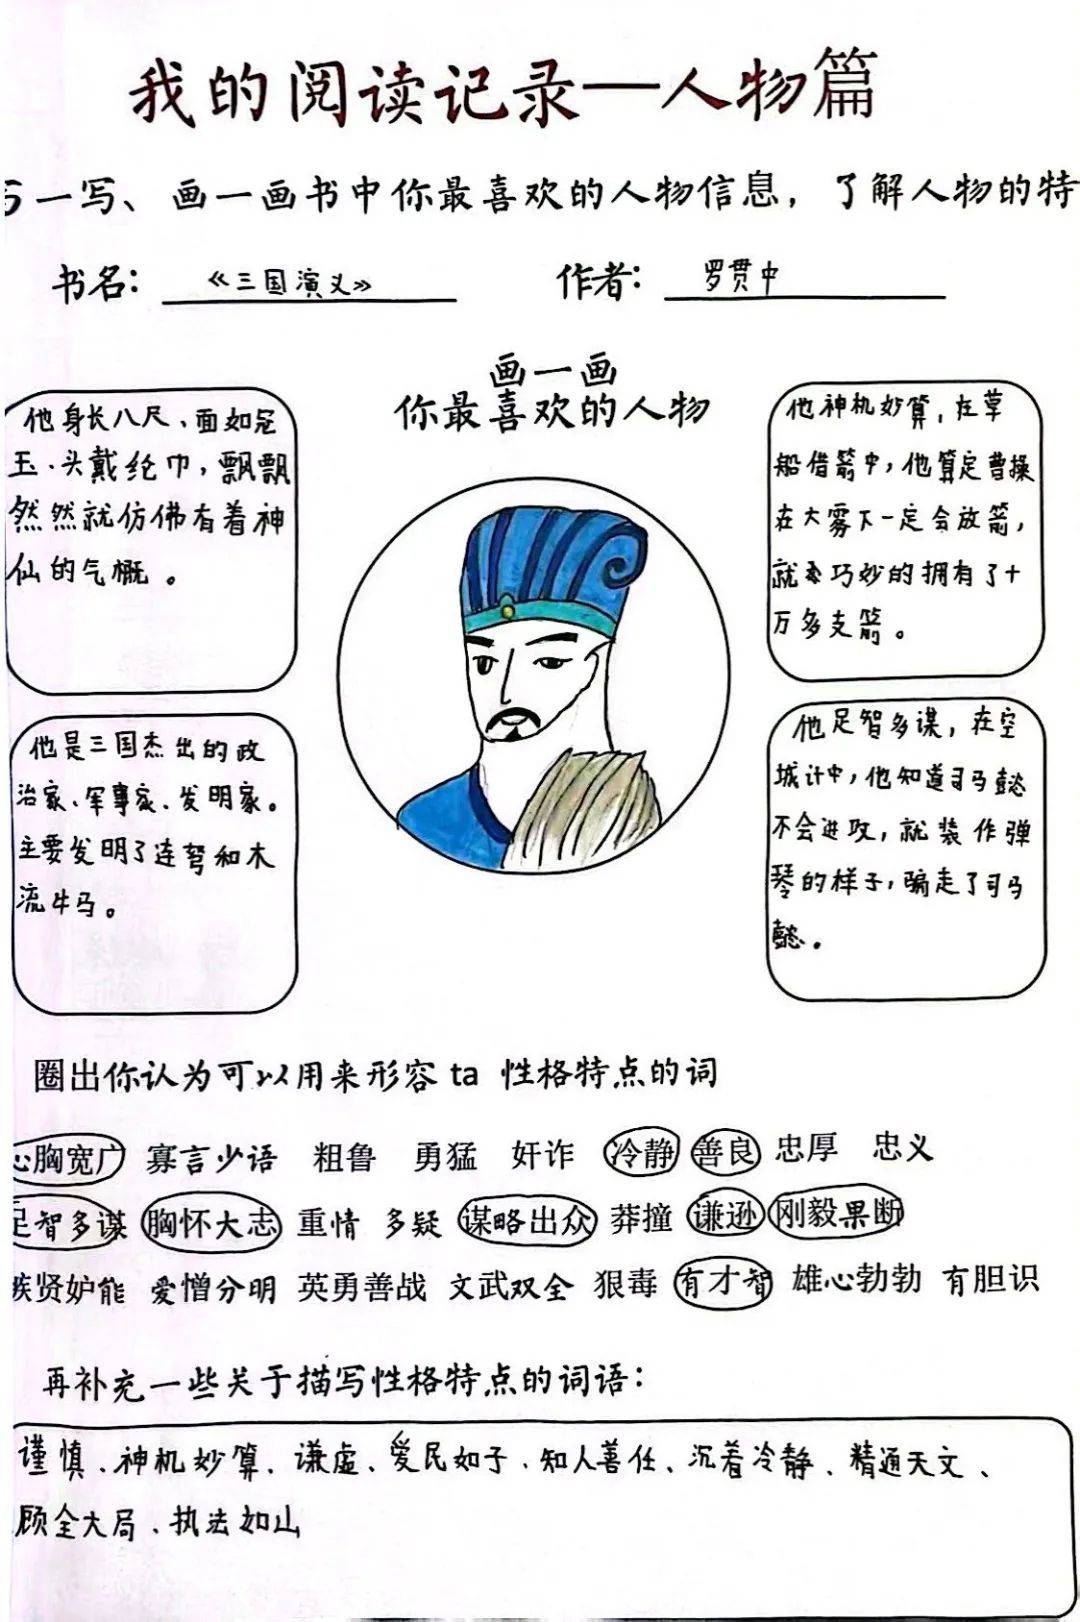 我的阅读记录—人物篇
一写、画一画书中你最喜欢的人物信息，了解人物的特
书名：《三国演义》 作者：罗贯中
画一画
你最喜欢的人物
他身长八尺、面如冠
玉.头戴纶巾，飘飘
然然就仿佛有着神
仙的气概。
他神机妙算，在草
船借箭中，他算定曹操
在大雾下一定会放箭，
就巧妙的拥有了十
万多支箭。
他是三国杰出的政
治家、军事家、发明家。
主要发明了连弩和木
流牛马。
他足智多谋，在空
城计中，他知道司马懿
不会进攻，就装作弹
琴的样子，骗走了司马
懿。
圈出你认为可以用来形容ta 性格特点的词
心胸宽广 寡言少语 粗鲁 勇猛 奸诈 冷静 善良 忠厚 忠义
足智多谋 胸怀大志 重情 多疑 谋略出众 莽撞 谦逊 刚毅果断
嫉贤妒能 爱憎分明 英勇善战 文武双全 狠毒 有才智 雄心勃勃 有胆识
再补充一些关于描写性格特点的词语：
谨慎、神机妙算、谦虚、爱民如子、知人善任、沉着冷静、精通天文、
顾全大局、执法如山